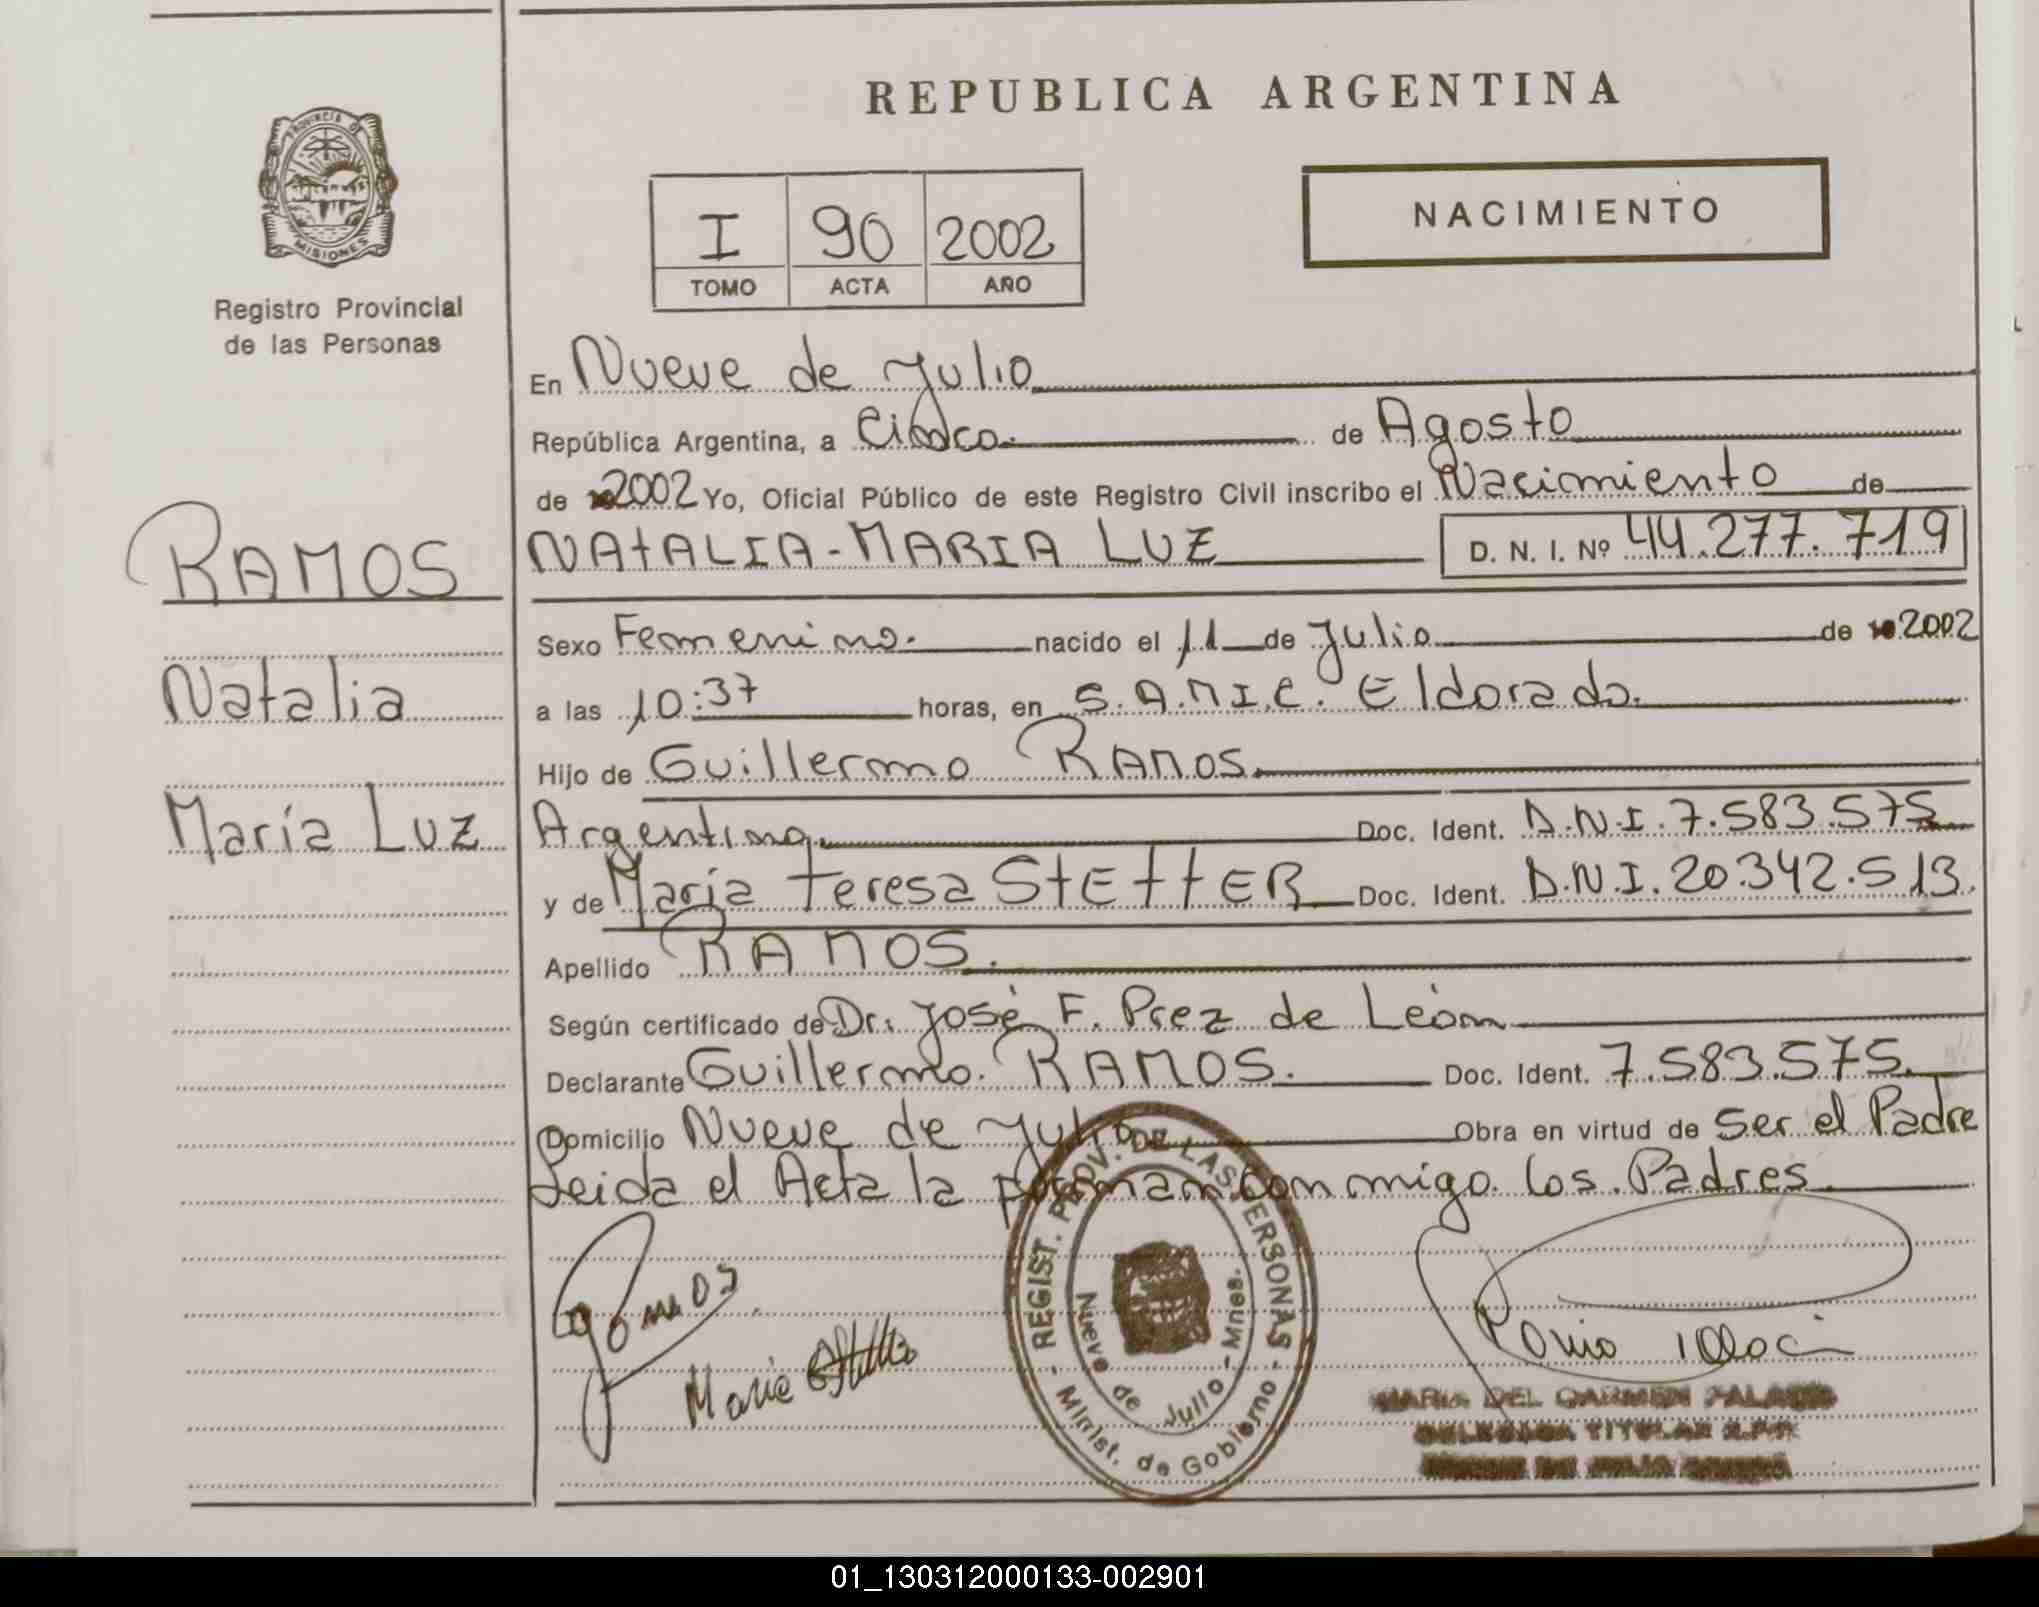 REPUBLICA ARGENTINA
PROVINCIA DE
MISIONES
Registro Provincial
de las Personas
I 90 2002
TOMO ACTA AÑO
NACIMIENTO
RAMOS
Natalia
María Luz
En Nueve de Julio
República Argentina, a Cinco. de Agosto
de 2002 Yo, Oficial Público de este Registro Civil inscribo el Nacimiento de
NATALIA-MARIA LUZ D. N. I. Nº 44.277.719
Sexo Femenino. nacido el 11 de Julio de 2002
a las 10:37 horas, en S.A.M.I.C. Eldorado.
Hijo de Guillermo RAMOS.
Argentino. Doc. Ident. D.N.I. 7.583.575
y de María Teresa STETTER Doc. Ident. D.N.I. 20.342.513.
Apellido RAMOS.
Según certificado de Dr: José F. Prez de León
Declarante Guillermo. RAMOS. Doc. Ident. 7.583.575.
Domicilio Nueve de Julio Obra en virtud de Ser el Padre
Leida el Acta la firman conmigo los Padres
Ramos
Maria
REGIST. PROV. DE LAS PERSONAS
Nueve de Julio - Mnes.
Minist. de Gobierno
MARIA DEL CARMEN
TITULAR
DE JULIO
01_130312000133-002901